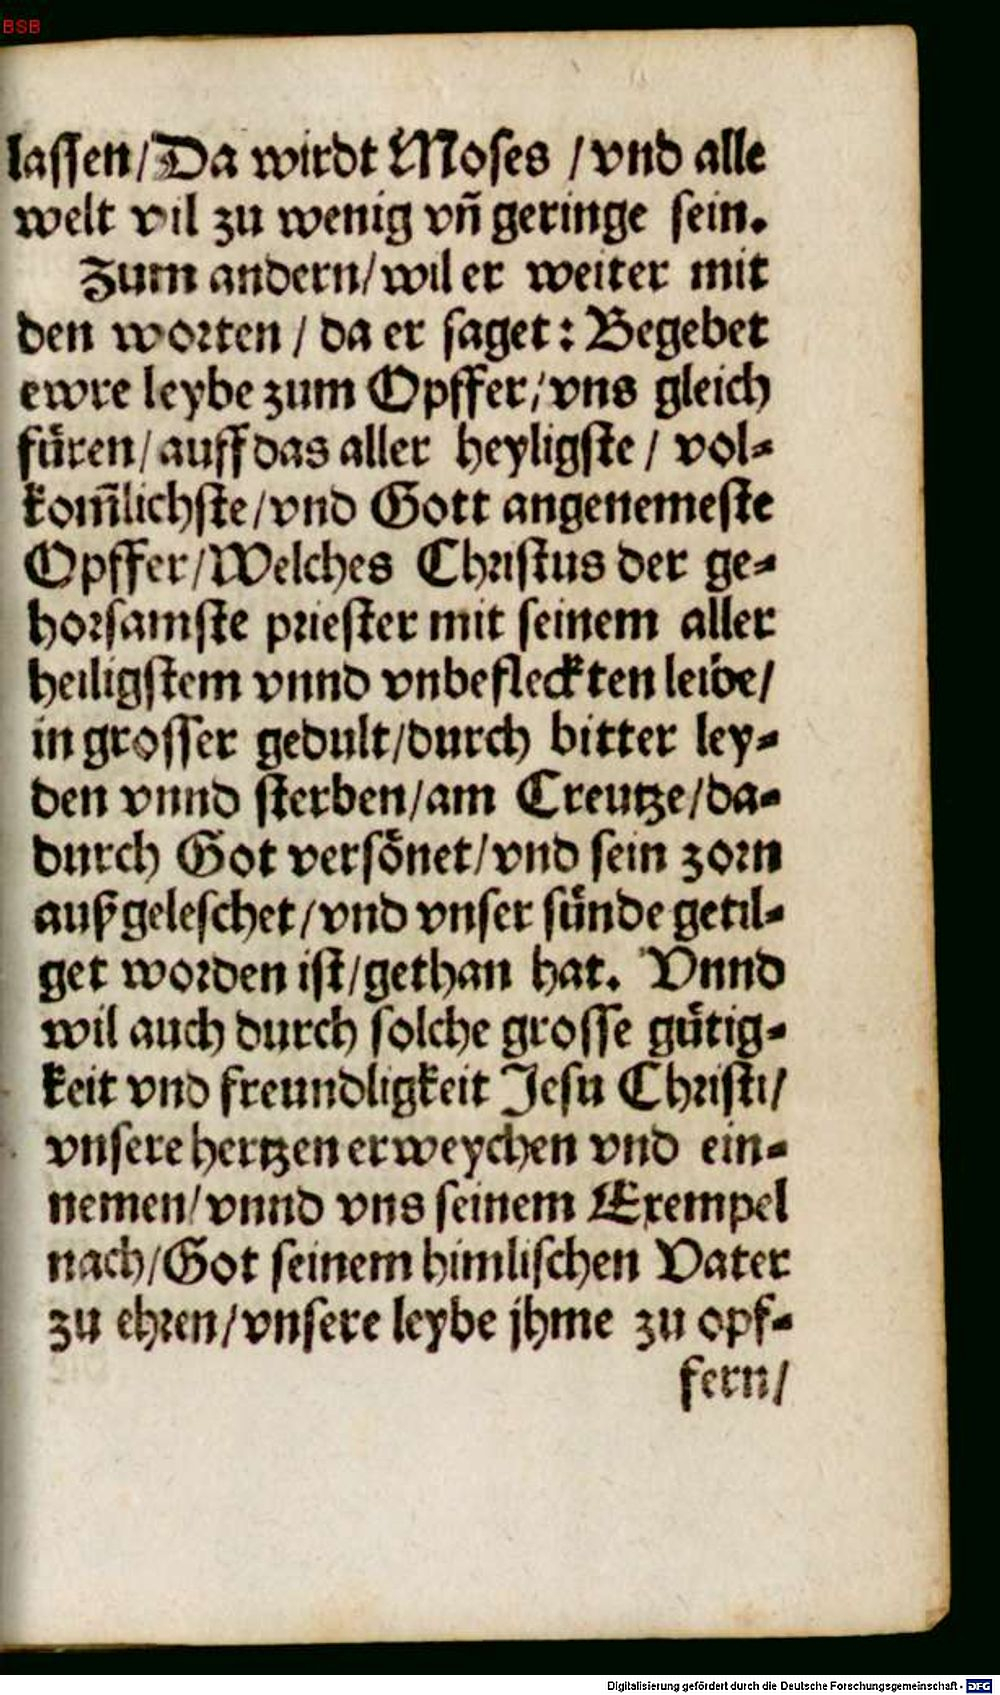 BSB
lassen/Da wirdt Moses /vnd alle
welt vil zu wenig vñ geringe sein.
Zum andern/wil er weiter mit
den worten / da er saget: Begebet
ewre leybe zum Opffer/vns gleich
füren/auff das aller heyligste / vol⸗
kom̃lichste/vnd Gott angenemeste
Opffer/Welches Christus der ge⸗
horsamste priester mit seinem aller
heiligstem vnnd vnbefleckten leibe/
in grosser gedult/durch bitter ley⸗
den vnnd sterben/am Creutze/da⸗
durch Got versönet/vnd sein zorn
außgeleschet/vnd vnser sünde getil⸗
get worden ist/gethan hat. Vnnd
wil auch durch solche grosse gütig⸗
keit vnd freundligkeit Jesu Christi/
vnsere hertzen erweychen vnd ein⸗
nemen/vnnd vns seinem Exempel
nach/Got seinem himlischen Vater
zu ehren/vnsere leybe jhme zu opf⸗
fern/
Digitalisierung gefördert durch die Deutsche Forschungsgemeinschaft - DFG